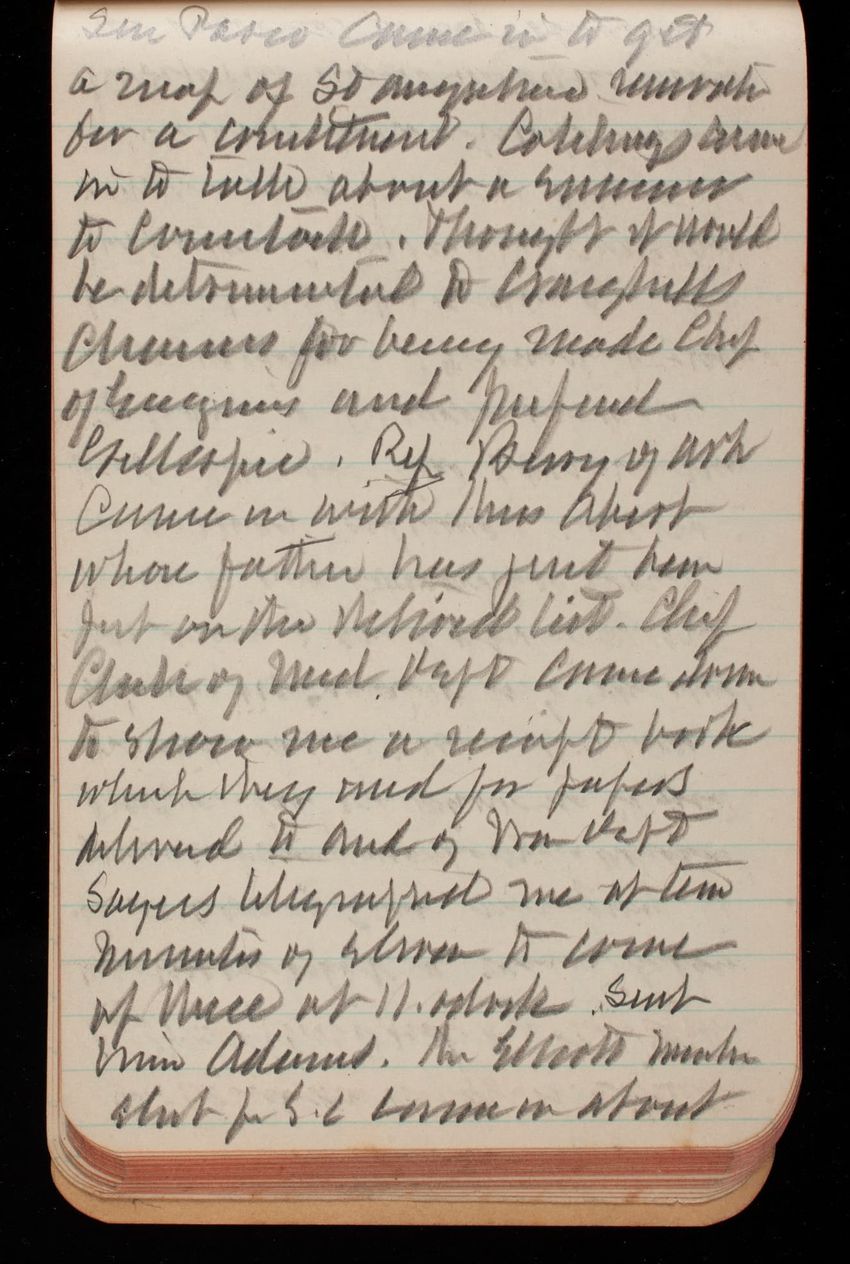 Sen Pasco came in to get
a map of St Augustine
for a constituent. came
in to talk about a
to Comstock. Thought it would
be detrimental to Craighills
chances for being made Chief
of Engineers and
Gillespie. Rep Berry of Ark
came in with Mrs Abert
whose father has just been
put on the Retired list. Chief
Clerk of Med. Dept came down
to show me a receipt book
which they used for papers
delivered to and of War Dept
Sayers telegraphed me at ten
minutes of eleven to come
up there at 11. oclock. Sent
him Adams. Mr Elliott member
elect for S.C came in about